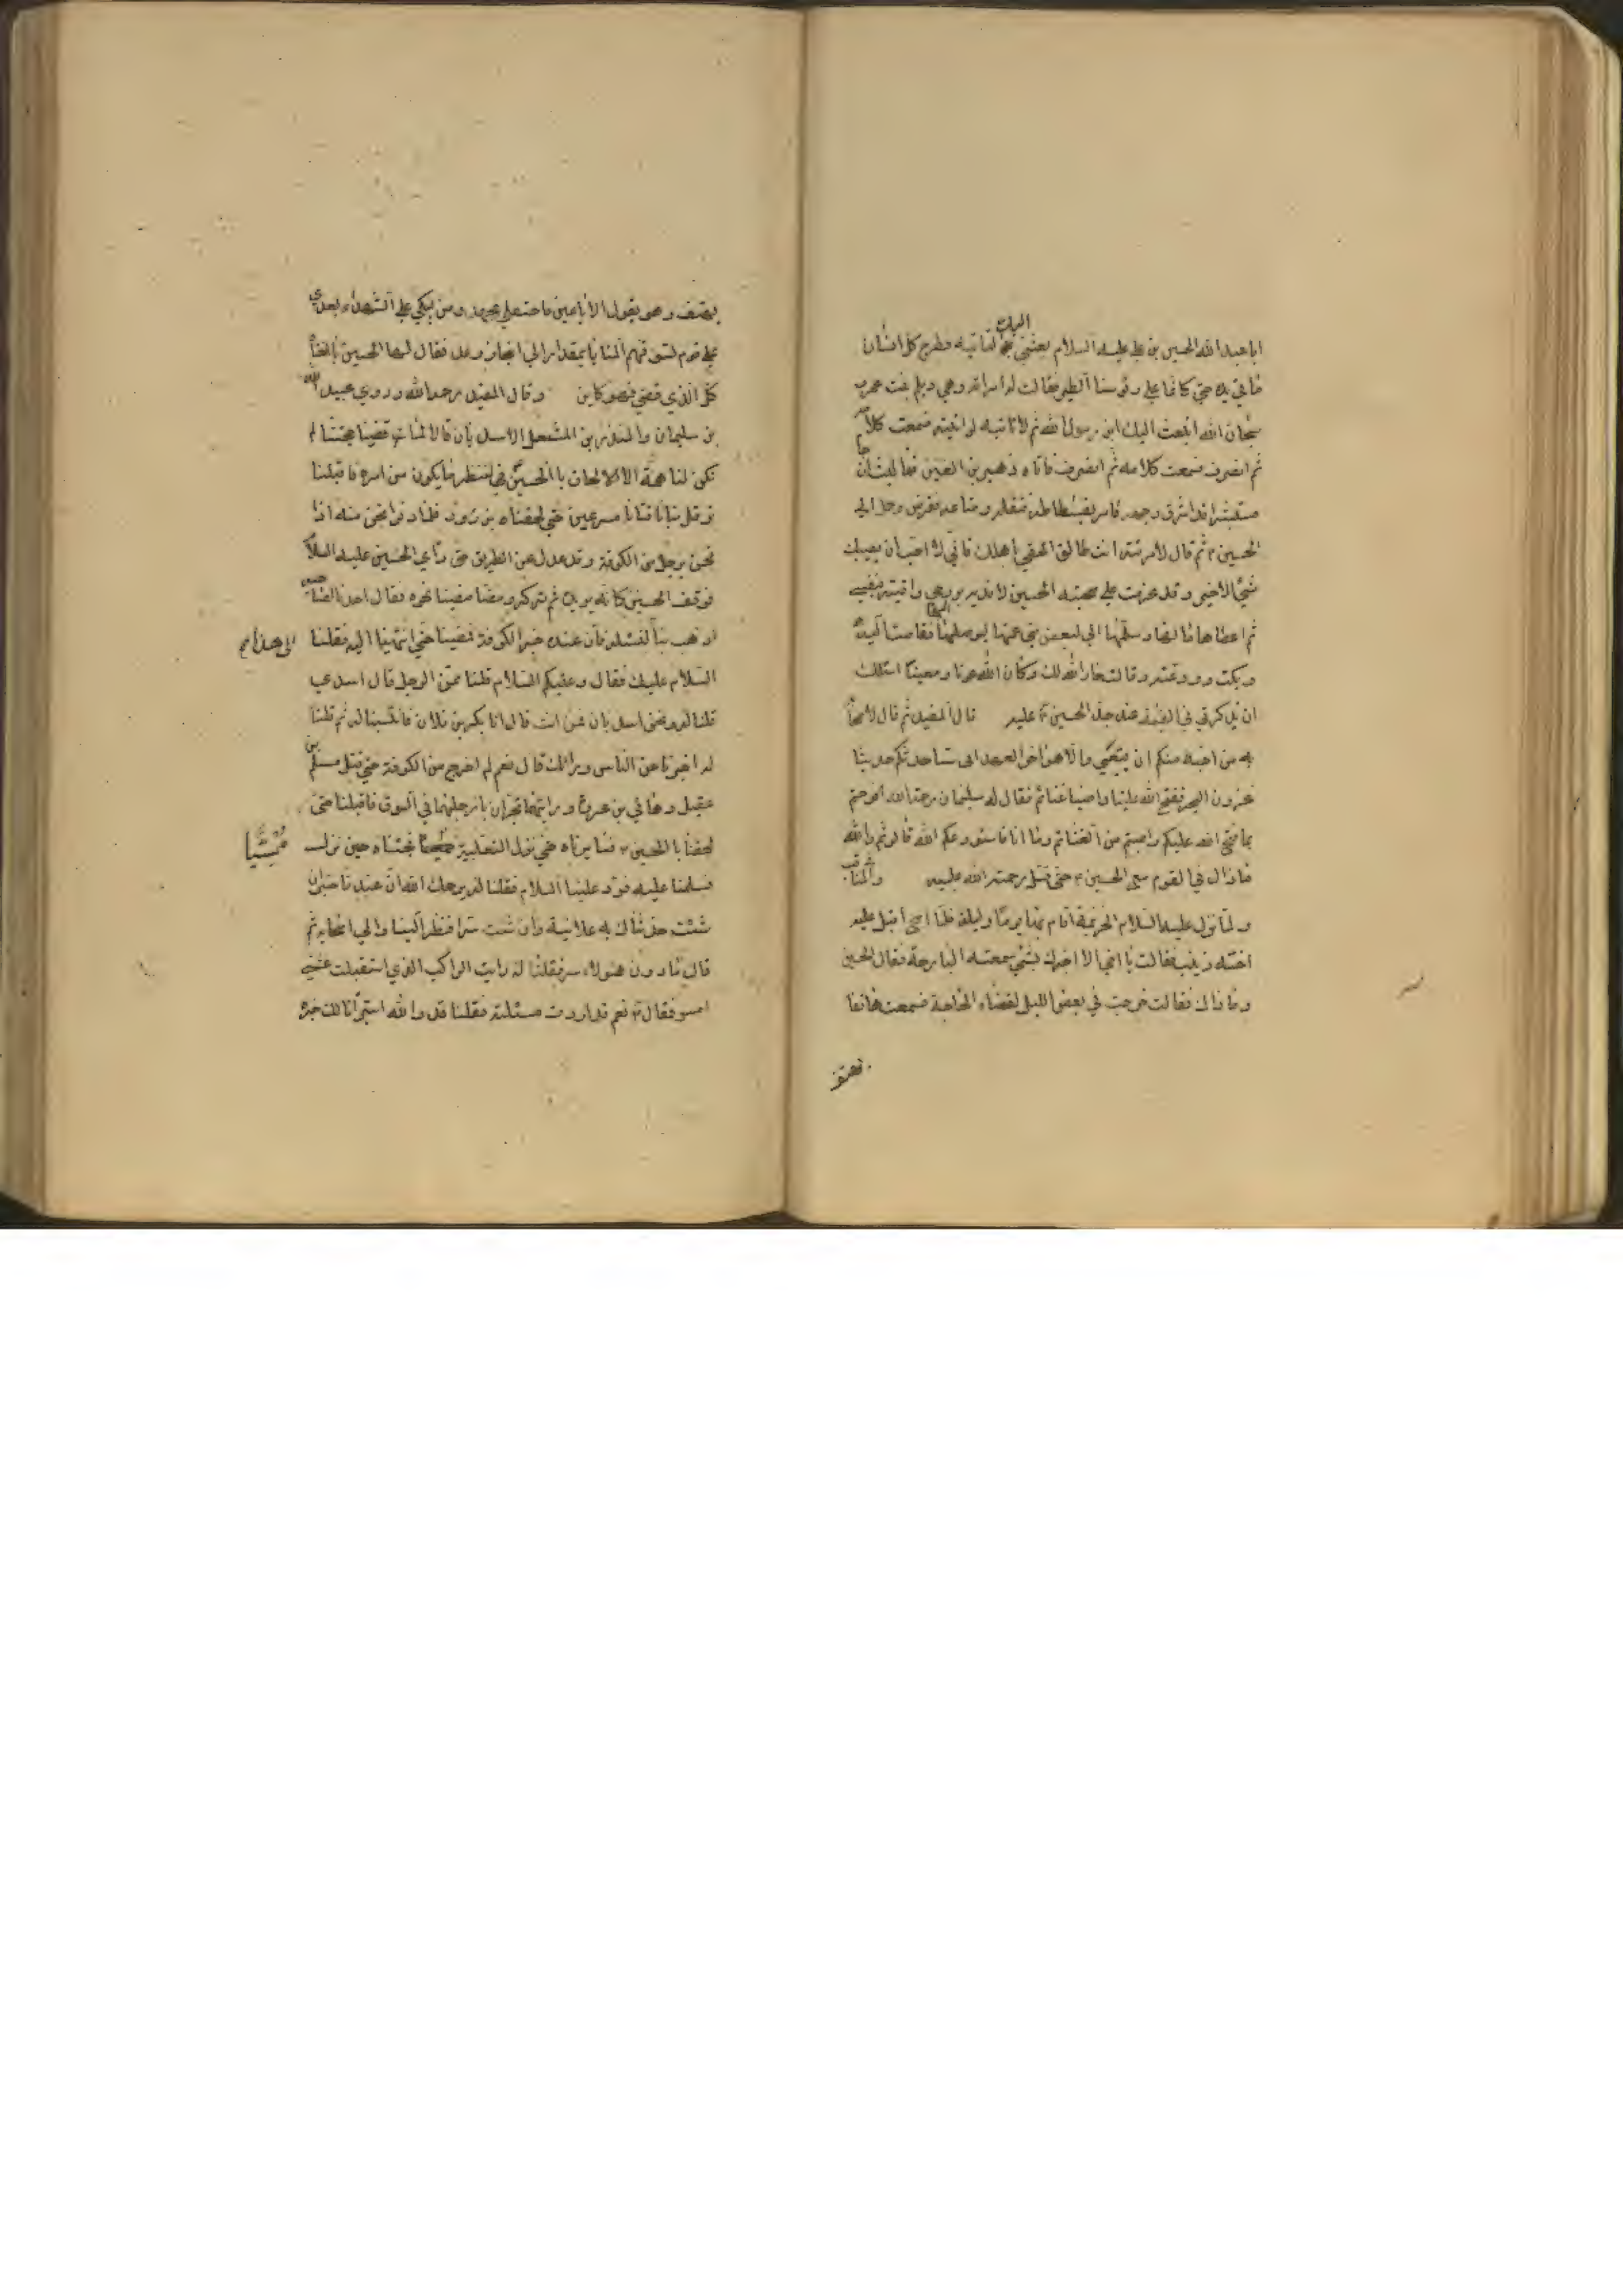 ابا عبد الله الحسين بن علي عليه السلام بعثني اليك لتاتيه فطرح كل انسان
ما في يده حتى كانما على رؤسنا الطير فقالت له امراته وهي ديلم بنت عمرو
سبحان الله ايبعث اليك ابن رسول الله ثم لا تاتيه لو اتيته فسمعت كلامه
ثم انصرف فسمعت كلامه ثم انصرف فاتاه زهير بن القين فما لبث ان جاء
مستبشرا قد اشرق وجهه فامر بفسطاطه وثقله ومتاعه فقوض وحمل الى
الحسين ثم قال لامرئته انت طالق الحقي باهلك فاني لا احب ان يصيبك
بسببي الا خير وقد عزمت على صحبة الحسين لافديه بروحي واقيه بنفسي
ثم اعطاها مالها وسلمها الى بعض بني عمها ليوصلها الى اهلها فقامت اليه
وبكت وودعته وقالت خار الله لك وكان الله عونا ومعينا اسئلك
ان تذكرني في القيمة عند جد الحسين عليه قال المفيد ثم قال لاصحابه
من احب منكم ان يتبعني والا فهو اخر العهد اني ساحدثكم حديثا
غزونا البحر ففتح الله علينا واصبنا غنائم فقال لنا سلمان رحمة الله افرحتم
بما فتح الله عليكم واصبتم من الغنائم
فاما انا فاستودعكم الله قالوا ثم والله
ما زال في القوم مع الحسين حتى قتل رحمة الله عليه والمناقب
ولما نزل عليه السلام الخزيمية اقام بها يوما وليلة فلما اصبح اقبلت عليه
اخته زينب فقالت يا اخي الا اخبرك بشئ سمعته البارحة فقال الحسين
وما ذاك فقالت خرجت في بعض الليل لقضاء الحاجة فسمعت هاتفا
يهتف
يهتف وهو يقول الا يا عين فاحتفلي بجهد ومن يبكي على الشهداء بعدي
على قوم تسوقهم المنايا بمقدار الى انجاز وعد فقال لها الحسين يا اختاه
كل الذي قضي فهو كاين وقال المفيد رحمه الله وروى عبد الله
بن سليمان والمنذر بن المشمعل الاسديان قالا لما قضينا حجتنا لم
تكن لنا همة الا الالحاق بالحسين في الطريق لننظر ما يكون من امره فاقبلنا
ترقل بنا ناقتانا مسرعين حتى لحقناه بزرود فلما دنونا منه اذا
نحن برجل من الكوفة وقد عدل عن الطريق حتى راى الحسين عليه السلام
فوقف الحسين كانه يريده ثم تركه ومضى ومضينا نحوه فقال احدنا لصاحبه
اذهب بنا الى هذا لنسئله فان عنده خبر الكوفة فمضينا حتى انتهينا اليه فقلنا
السلام عليك فقال وعليكم السلام قلنا ممن الرجل قال اسدي
قلنا له ونحن اسديان فمن انت قال انا بكر بن فلان فانتسبنا له ثم قلنا
له اخبرنا عن الناس وراءك قال نعم لم اخرج من الكوفة حتى قتل مسلم بن
عقيل وهاني بن عروة ورايتهما يجران بارجلهما في السوق فاقبلنا حتى
لحقنا بالحسين فسايرناه حتى نزل الثعلبية ممسيا فجئناه حين نزل
فسلمنا عليه فرد علينا السلام فقلنا له يرحمك الله ان عندنا خبرا ان
شئت حدثناك به علانية وان شئت سرا فنظر الينا والى اصحابه ثم
قال ما دون هؤلاء سر فقلنا له رايت الراكب الذي استقبلت عشي
امس فقال نعم قد اردت مسئلته فقلنا قد والله استبرانا لك خبره